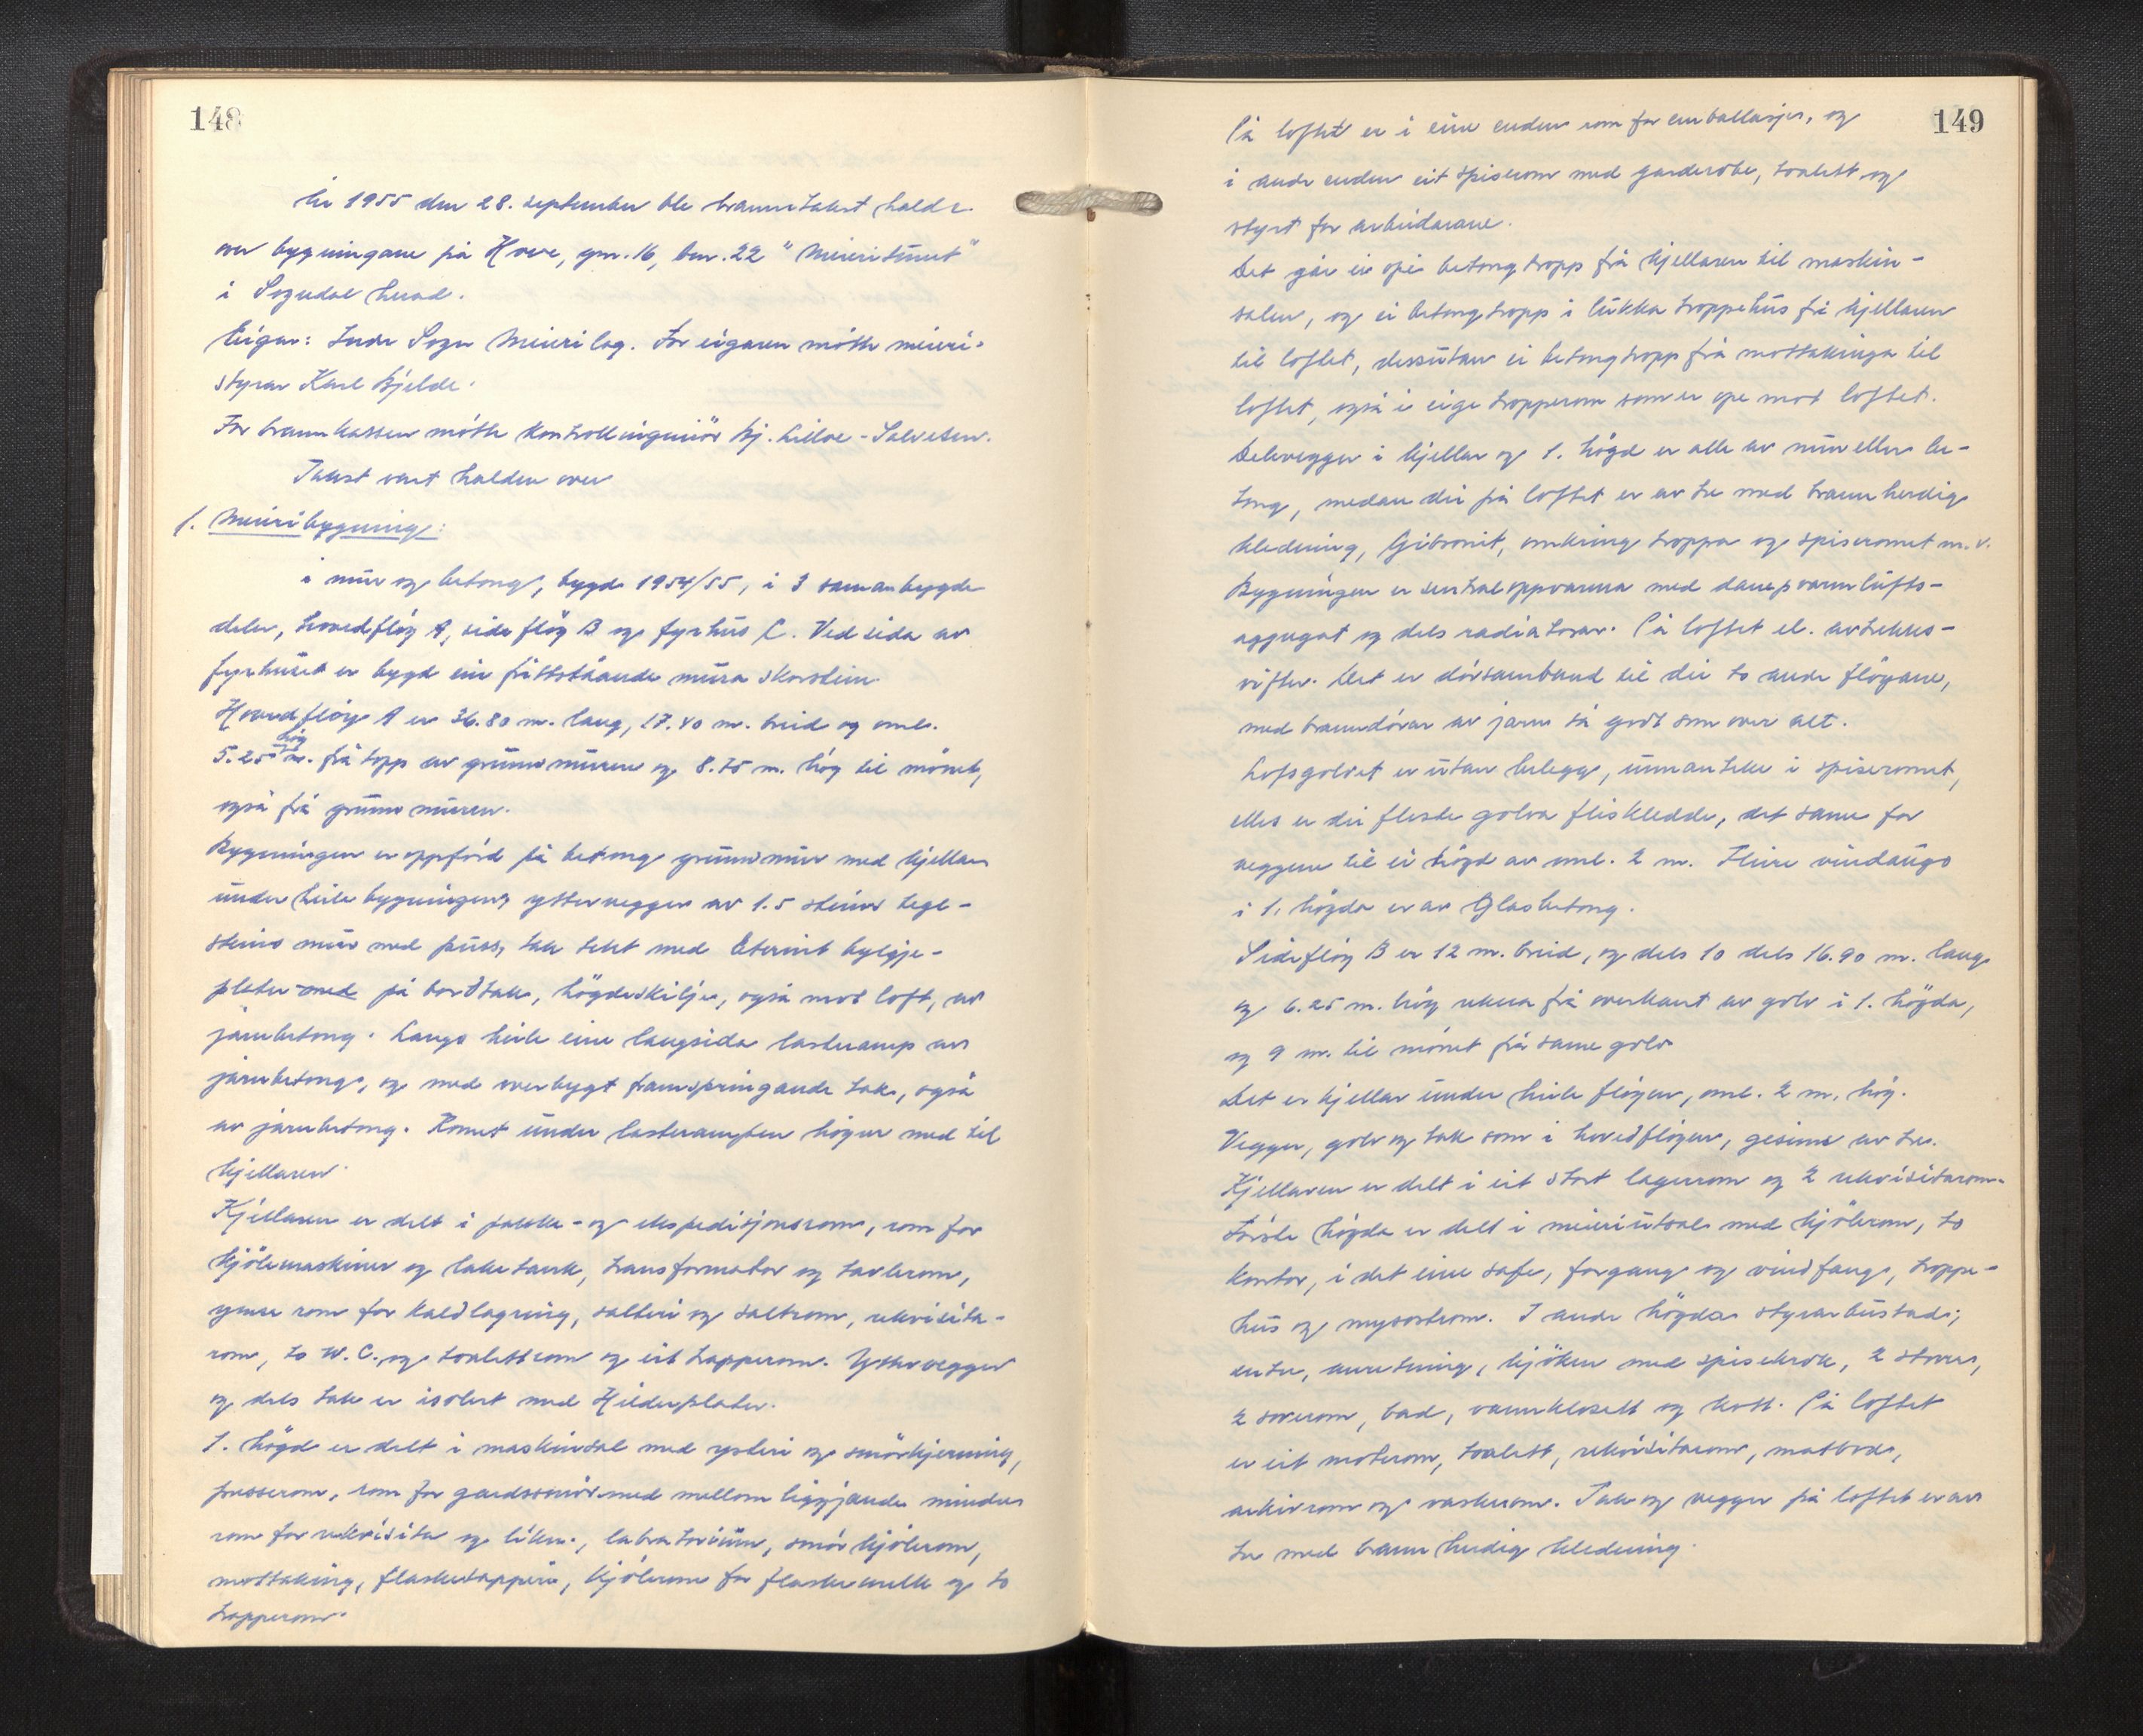 148
År 1955 den 28. september ble branntakst halde
over bygningane på Hove, gnr. 16, bnr. 22 "Meieritunet"
i Sogndal herad.
Eigar: Indre Sogn Meierilag. For eigaren møtte meieri-
styrar Karl Bjelde.
For brannkassen møtte kontrollingeniör Bj. Lilloe-Salvesen.
Takst vart halden over
1. Meieribygning:
i mur og betong, bygd 1954/55, i 3 samanbygde
deler, hovedflöy A, side flöy B og fyrhus C. Ved sida av
fyrhuset er bygd ein frittståande mura skorstein.
Hovedflöy A er 36.80 m. lang, 17.40 m. breid og oml.
5.25 m. höy frå topp av grunnmuren og 8.75 m. höy til mönet,
også frå grunnmuren.
Bygningen er oppförd på betong grunnmur med kjellar
under heile bygningen, yttervegger av 1.5 steins tegl-
steins mur med puss, tak tekt med Eternit bylgje-
plater med på bordtak, högdeskilje, også mot loft, av
jarnbetong. Langs heile eine langsida lasterampe av
jarnbetong, og med overbygt framspringande tak, også
av jarnbetong. Romet under lasterampen höyrer med til
kjellaren.
Kjellaren er delt i pakke- og ekspedisjonsrom, rom for
kjölemaskiner og laketank, transformator og tavlerom,
ymse rom for kaldlagring, salteri og saltrom, rekvisita-
rom, to W.C. og toalettrom og eit trapperom. Yttervegger
og dels tak er isolert med Hilderplater.
1. högd er delt i maskinsal med ysteri og smörkjerning,
presserom, rom for gardssmör med mellom liggjande mindre
rom for rekvisita og likn., labratorium, smör kjölerom,
mottaking, flasketapperi, kjölerom for flaskemelk og to
trapperom.
149
På loftet er i eine enden rom for emballasje, og
i andre enden eit spiserom med garderobe, toalett og
styrt for arbeidarane.
Det går ei opi betong tropp frå kjellaren til maskin-
salen, og ei betongtropp i lukka troppehus frå kjellaren
til loftet, dessutan ei betongtropp frå mottakinga til
loftet, også i eige tropperom som er ope mot loftet.
Delevegger i kjellar og 1. högd er alle av mur eller be-
tong, medan dei på loftet er av tre med brannherdig
kledning, Gibsonit, omkring troppa og spiseromet m.v.
Bygningen er sentraloppvarma med damp varmlufts-
aggregat og dels radiatorar. På loftet el. avtrekks-
vifter. Det er dörsamband til dei to andre flöyane,
med branndörar av jarn så godt som over alt.
Loftsgolvet er utan belegg, unnanteke i spiseromet,
elles er dei fleste golva fliskledde, det same for
veggene til ei högd av oml. 2 m. Fleire vindaugo
i 1. högda er av Glasbetong.
Sideflöy B er 12 m. breid, og dels 10 dels 16.90 m. lang
og 6.25 m. höy rekna frå overkant av golv i 1. högda,
og 9 m. til mönet frå same golv
Det er kjellar under heile flöyen, oml. 2 m. höy.
Vegger, golv og tak som i hovedflöyen, gesims av tre.
Kjellaren er delt i eit stort lagerrom og 2 rekvisitarom.
Förste högda er delt i meieriutsal med kjölerom, to
kontor, i det eine safe, forgang og vindfang, troppe-
hus og mysostrom. I andre högda styrarbustad;
entre, anretning, kjöken med spisekrok, 2 stover,
2 soverom, bad, vannklosett og kott. På loftet
er eit moterom, toalett, rekvisitarom, matbod,
arkivrom og vaskerom. Tak og vegger på loftet er av
tre med brannherdig kledning.